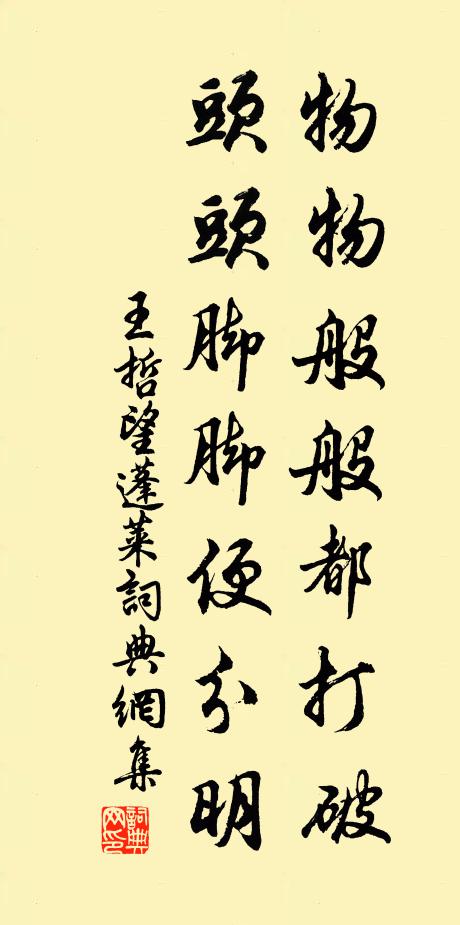 物物般般都打破
頭頭脚脚便分明
王哲望蓬莱詞典網集
詞典网印